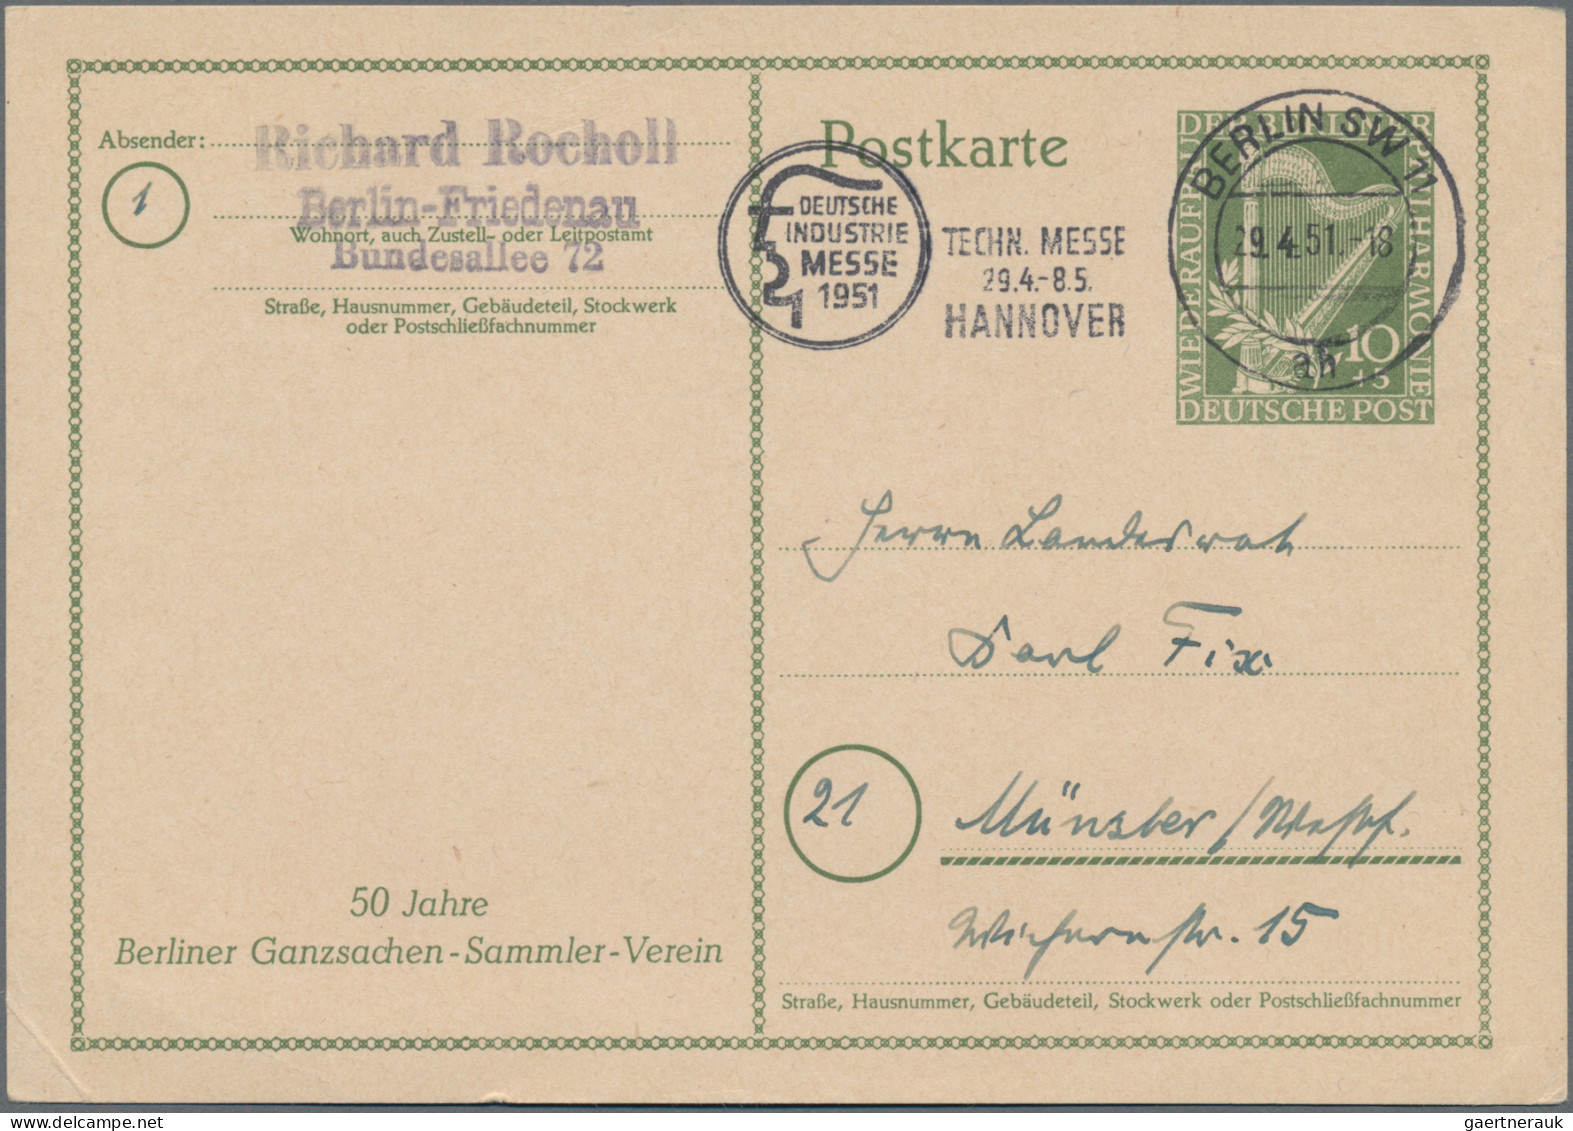 Absender:
Richard Rocholl
1
Berlin-Friedenau
Wohnort, auch Zustell- oder Leitpostamt
Bundesallee 72
Straße, Hausnummer, Gebäudeteil, Stockwerk
oder Postschließfachnummer
50 Jahre
Berliner Ganzsachen-Sammler-Verein
Postkarte
DEUTSCHE
INDUSTRIE
MESSE
1951
TECHN. MESSE
29.4.-8.5.
HANNOVER
BERLIN SW 11
29.4.51.-18
ah
WIEDERAUFBAU DER BERLINER PHILHARMONIE
10
+5
DEUTSCHE POST
Herrn Landesrat
Karl Fix
21
Münster/Westf.
Wichernstr. 15
Straße, Hausnummer, Gebäudeteil, Stockwerk oder Postschließfachnummer
gaertnerauk